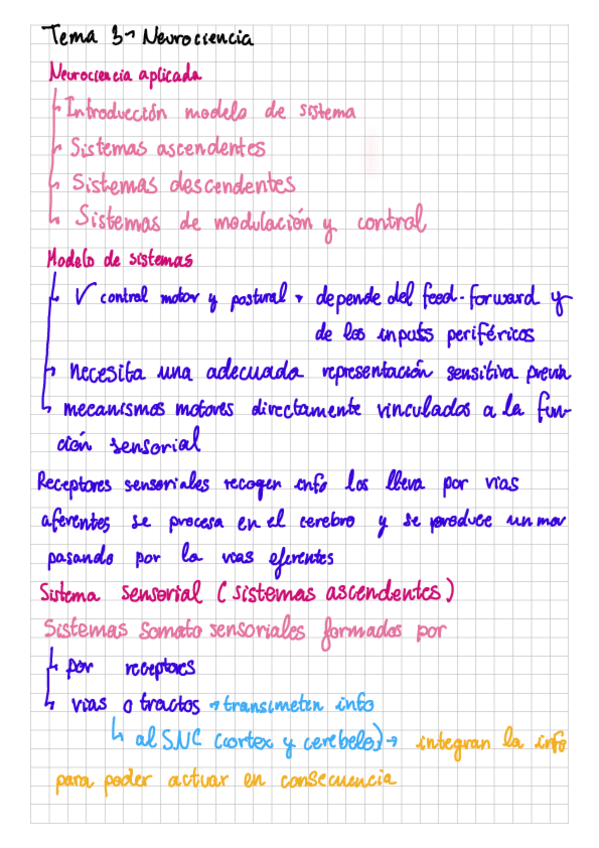 Tema 3 → Neurociencia
Neurociencia aplicada
Introducción modelo de sistema
Sistemas ascendentes
Sistemas descendentes
Sistemas de modulación y control
Modelo de sistemas
V control motor y postural → depende del feed-forward y
de los inputs periféricos
necesita una adecuada representación sensitiva previa
mecanismos motores directamente vinculados a la fun-
ción sensorial
Receptores sensoriales recogen info los lleva por vias
aferentes se procesa en el cerebro y se produce un mov
pasando por la vias eferentes
Sistema sensorial (sistemas ascendentes)
Sistemas somato sensoriales formados por
por receptores
vias o tractos → transmeten info
al SNC (cortex y cerebelo) → integran la info
para poder actuar en consecuencia